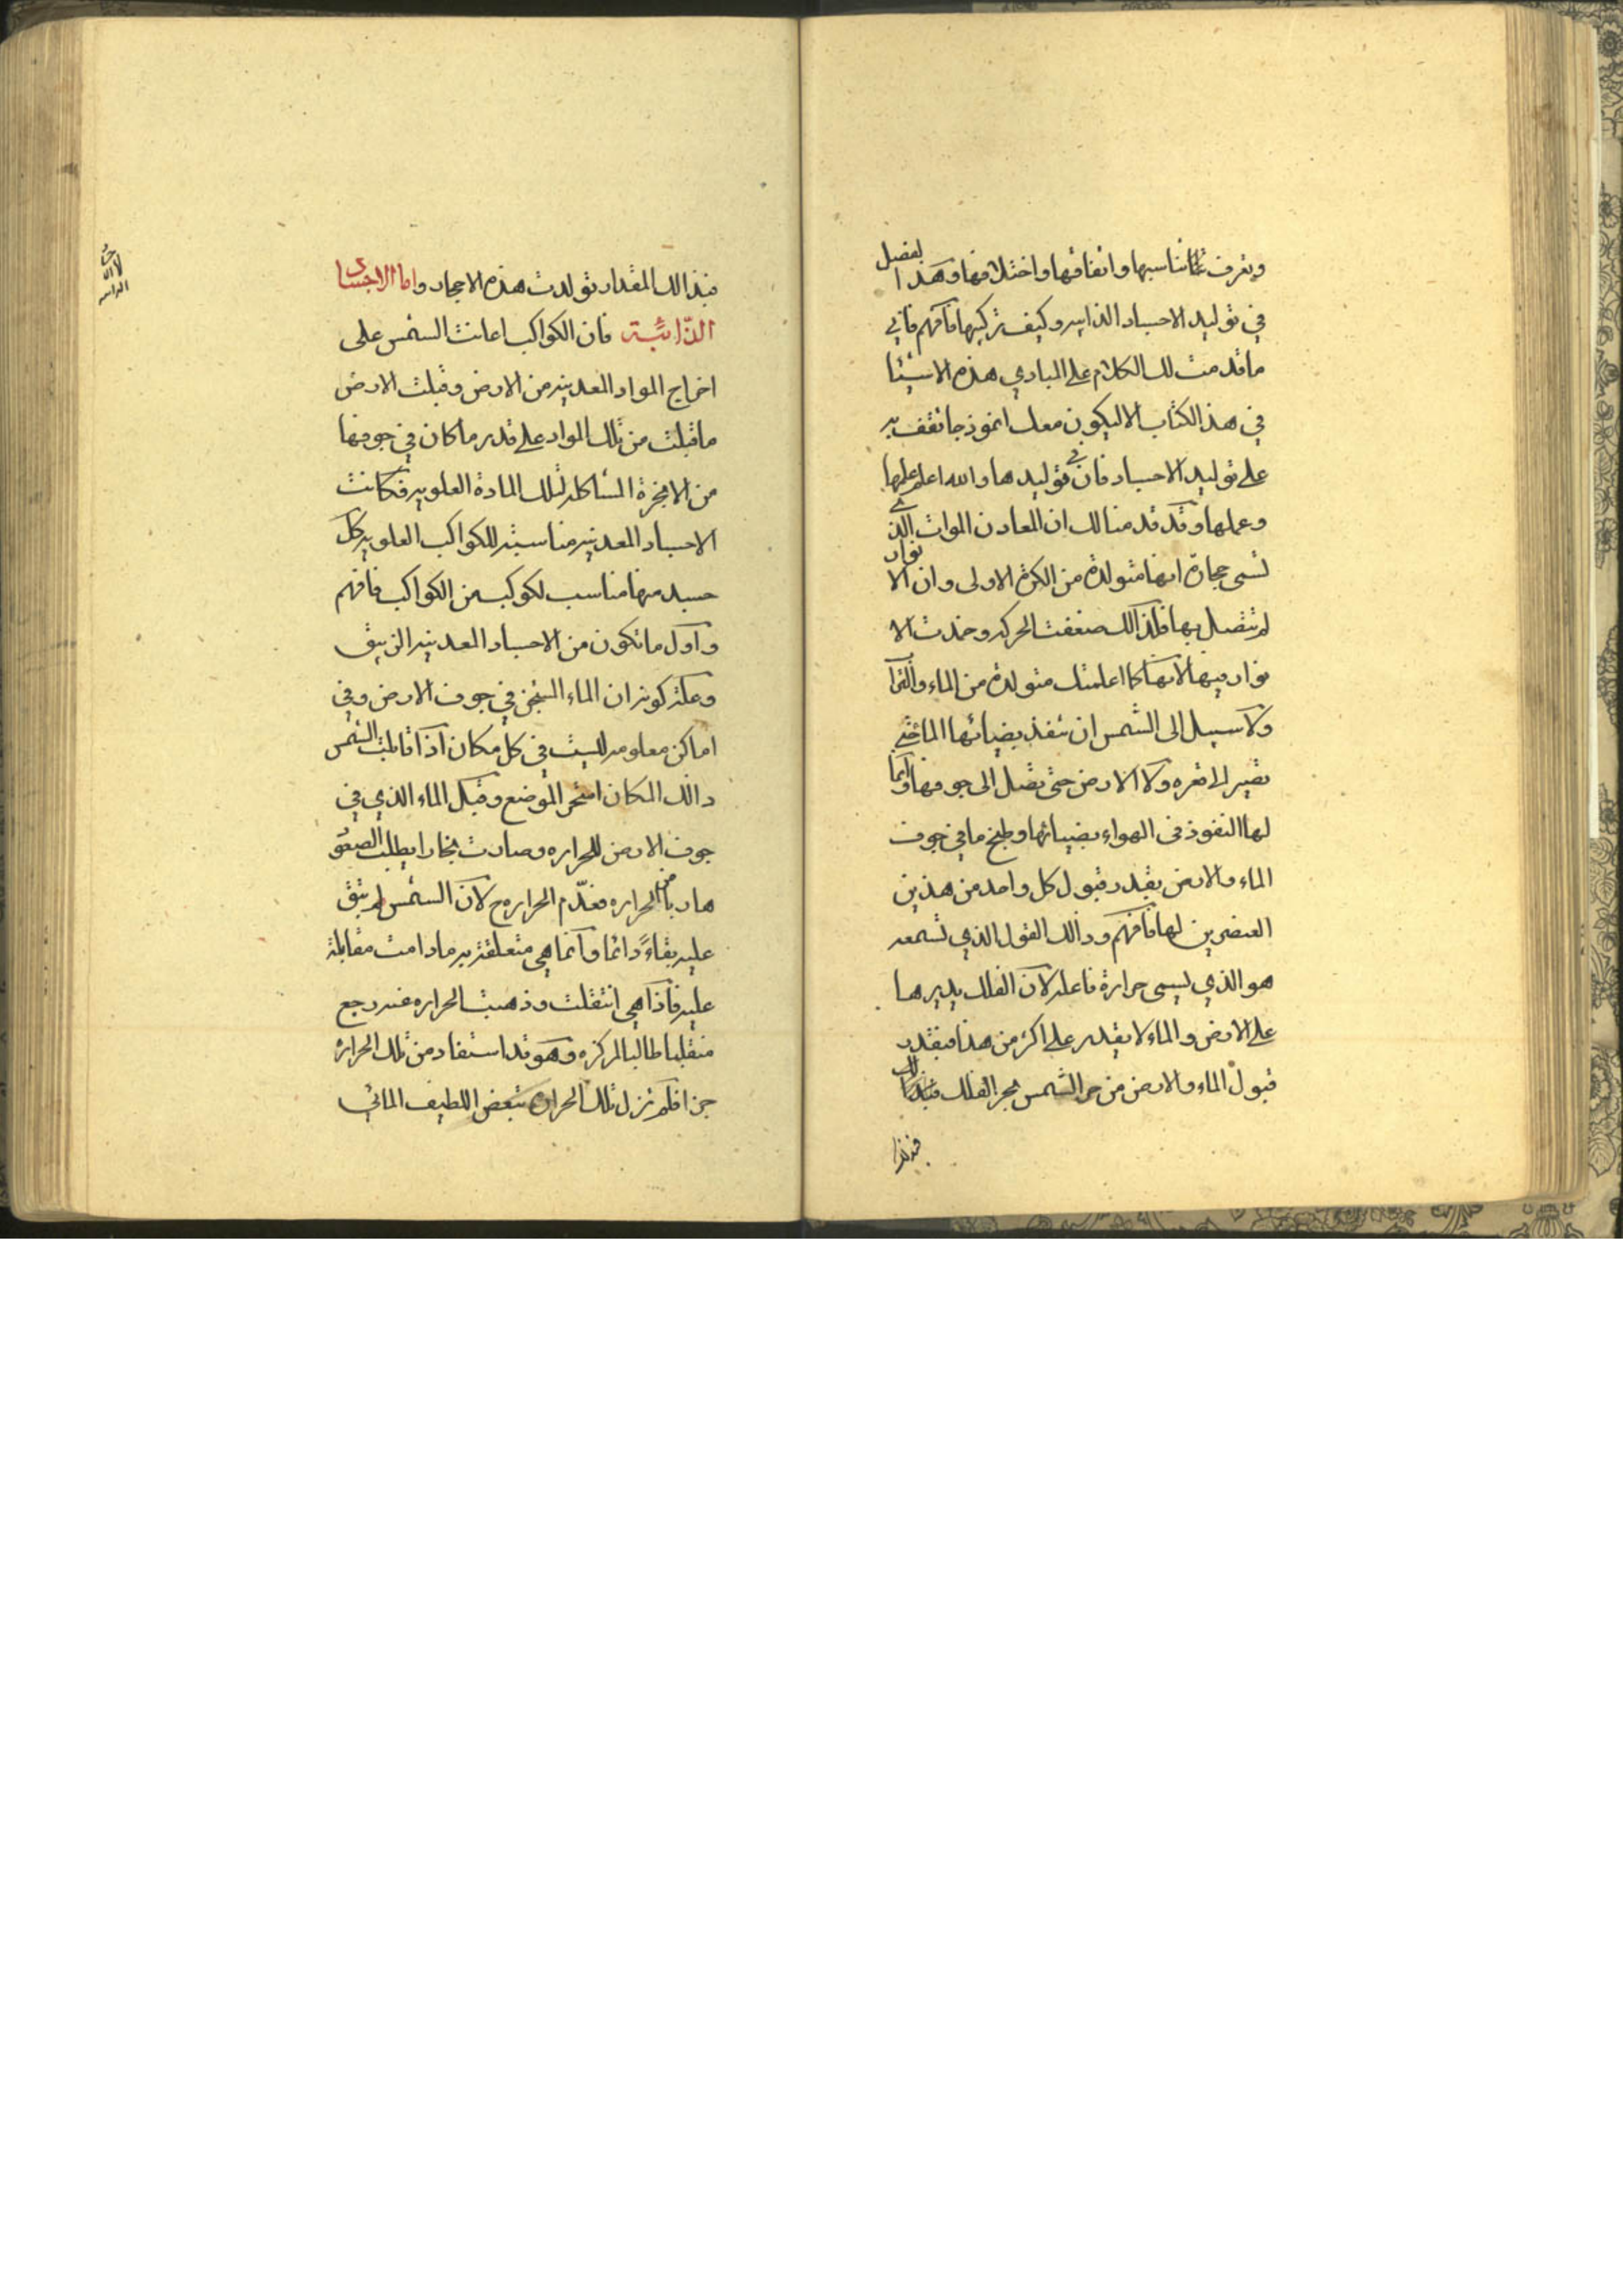 وتعرف تناسبها واتفاقها واختلافها وهذا لفصل
في توليد الاجساد الذايبه وكيف تركيبها فافهم فاني
ما قدمت لك الكلام على المبادي هذه الاشيئا
في هذ الكتاب الا ليكون معك انموذجا تقف به
على توليد الاجساد فان في توليدها والله اعلم علمها
وعملها وقد قدمنا لك ان المعادن الموات الذي
تسمى حجارة انها متولدة من الكرة الاولى وان الانوار
لم تتصل بها فلذالك ضعفت الحركه وخمدت الا
نوار فيها لانها كما اعلمتك متولدة من الماء والتراب
ولا سبيل الى الشمس ان تنفذ بضيائها الماء حتى
تصير الا قعره ولا الارض حتى تصل الى جوفها وانما
لها النفوذ في الهواء بضيائها وطبخ ما في جوف
الماء والارض بقدر قبول كل واحد من هذين
العنصرين لها فافهم وذالك القول الذي تسمعه
هو الذي ليسمى حرارة فاعله لان الفلك يديرها
على الارض والماء لا يقدر على اكثر من هذا فبقدر
قبول الماء والارض من حر الشمس بحر الفلك فبذالك
فبذالك المقدار تولدت هذه الاحجار واما الاجساد
الذائبة فان الكواكب اعانت الشمس على
اخراج المواد المعدنيه من الارض وقبلت الارض
ما قبلت من تلك المواد على قدر ما كان في جوفها
من الابخرة المشاكله لتلك المادة العلويه فكانت
الاجساد المعدنيه مناسبته للكواكب العلويه كل
جسد منها مناسب لكوكب من الكواكب فافهم
واول ما تكون من الاجساد المعدنيه الزيبق
وعلة كونه ان الماء السخن في جوف الارض وفي
اماكن معلومه لليست في كل مكان اذا قابلت الشمس
ذالك المكان اسخن الموضع وقبل الماء الذي في
جوف الارض للحراره وصارت بخارا يطلب الصعو
هاربا من الحراره فعدم الحراره ح لان الشمس لم تبق
عليه بقاءً دائما وانما هي متعلقة به ما دامت مقابلة
عليه فاذا هي انتقلت وذهبت الحراره عنه رجع
منقلبا طالبا لمركزه وهو قد استفاد من تلك الحرارة
جزا فلم تزل تلك الحرارة تبعض اللطيف المائي